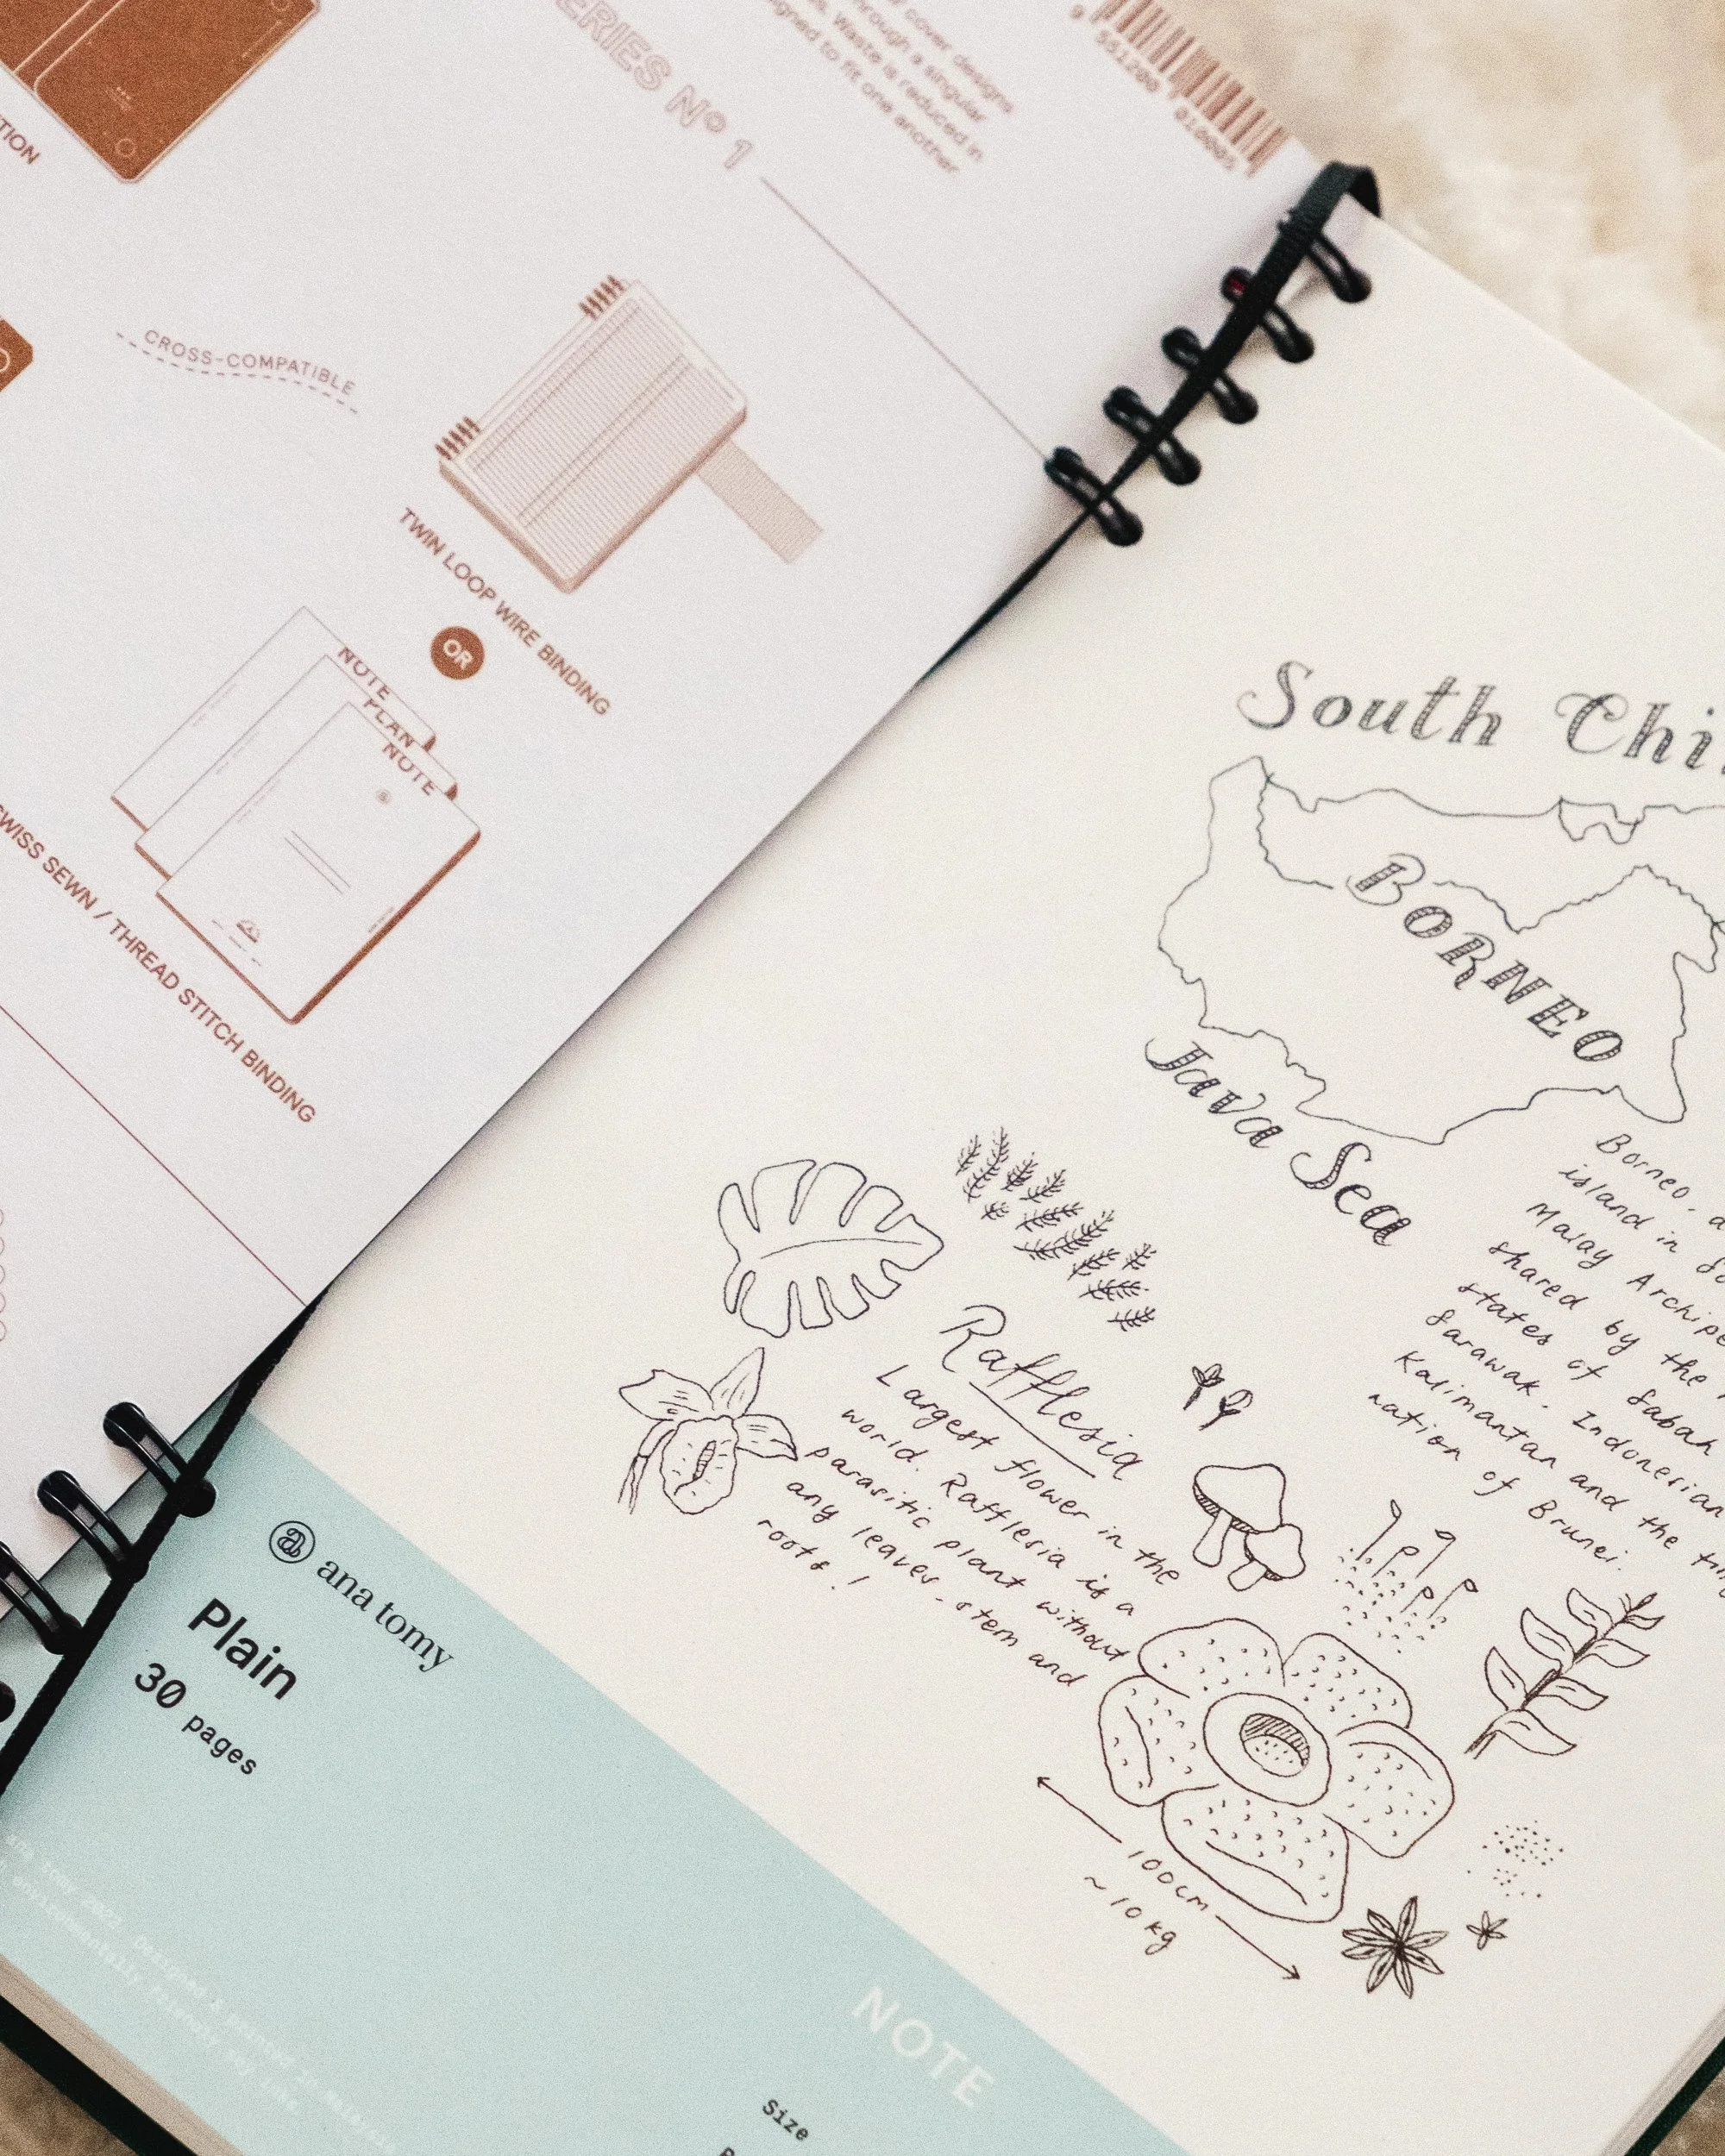 ERIES Nº 1
cover designs
through a singular
Waste is reduced in
igned to fit one another
9 551200 010005
TION
CROSS-COMPATIBLE
TWIN LOOP WIRE BINDING
OR
NOTE
PLAN
NOTE
SWISS SEWN / THREAD STITCH BINDING
South Chi
BORNEO
Java Sea
Borneo, a
island in So
Malay Archipe
shared by the
states of Sabah
Sarawak. Indonesian
Kalimantan and the tin
nation of Brunei.
Rafflesia
Largest flower in the
world. Rafflesia is a
parasitic plant without
any leaves, stem and
roots!
100cm
~10kg
ana tomy
Plain
30 pages
NOTE
Size